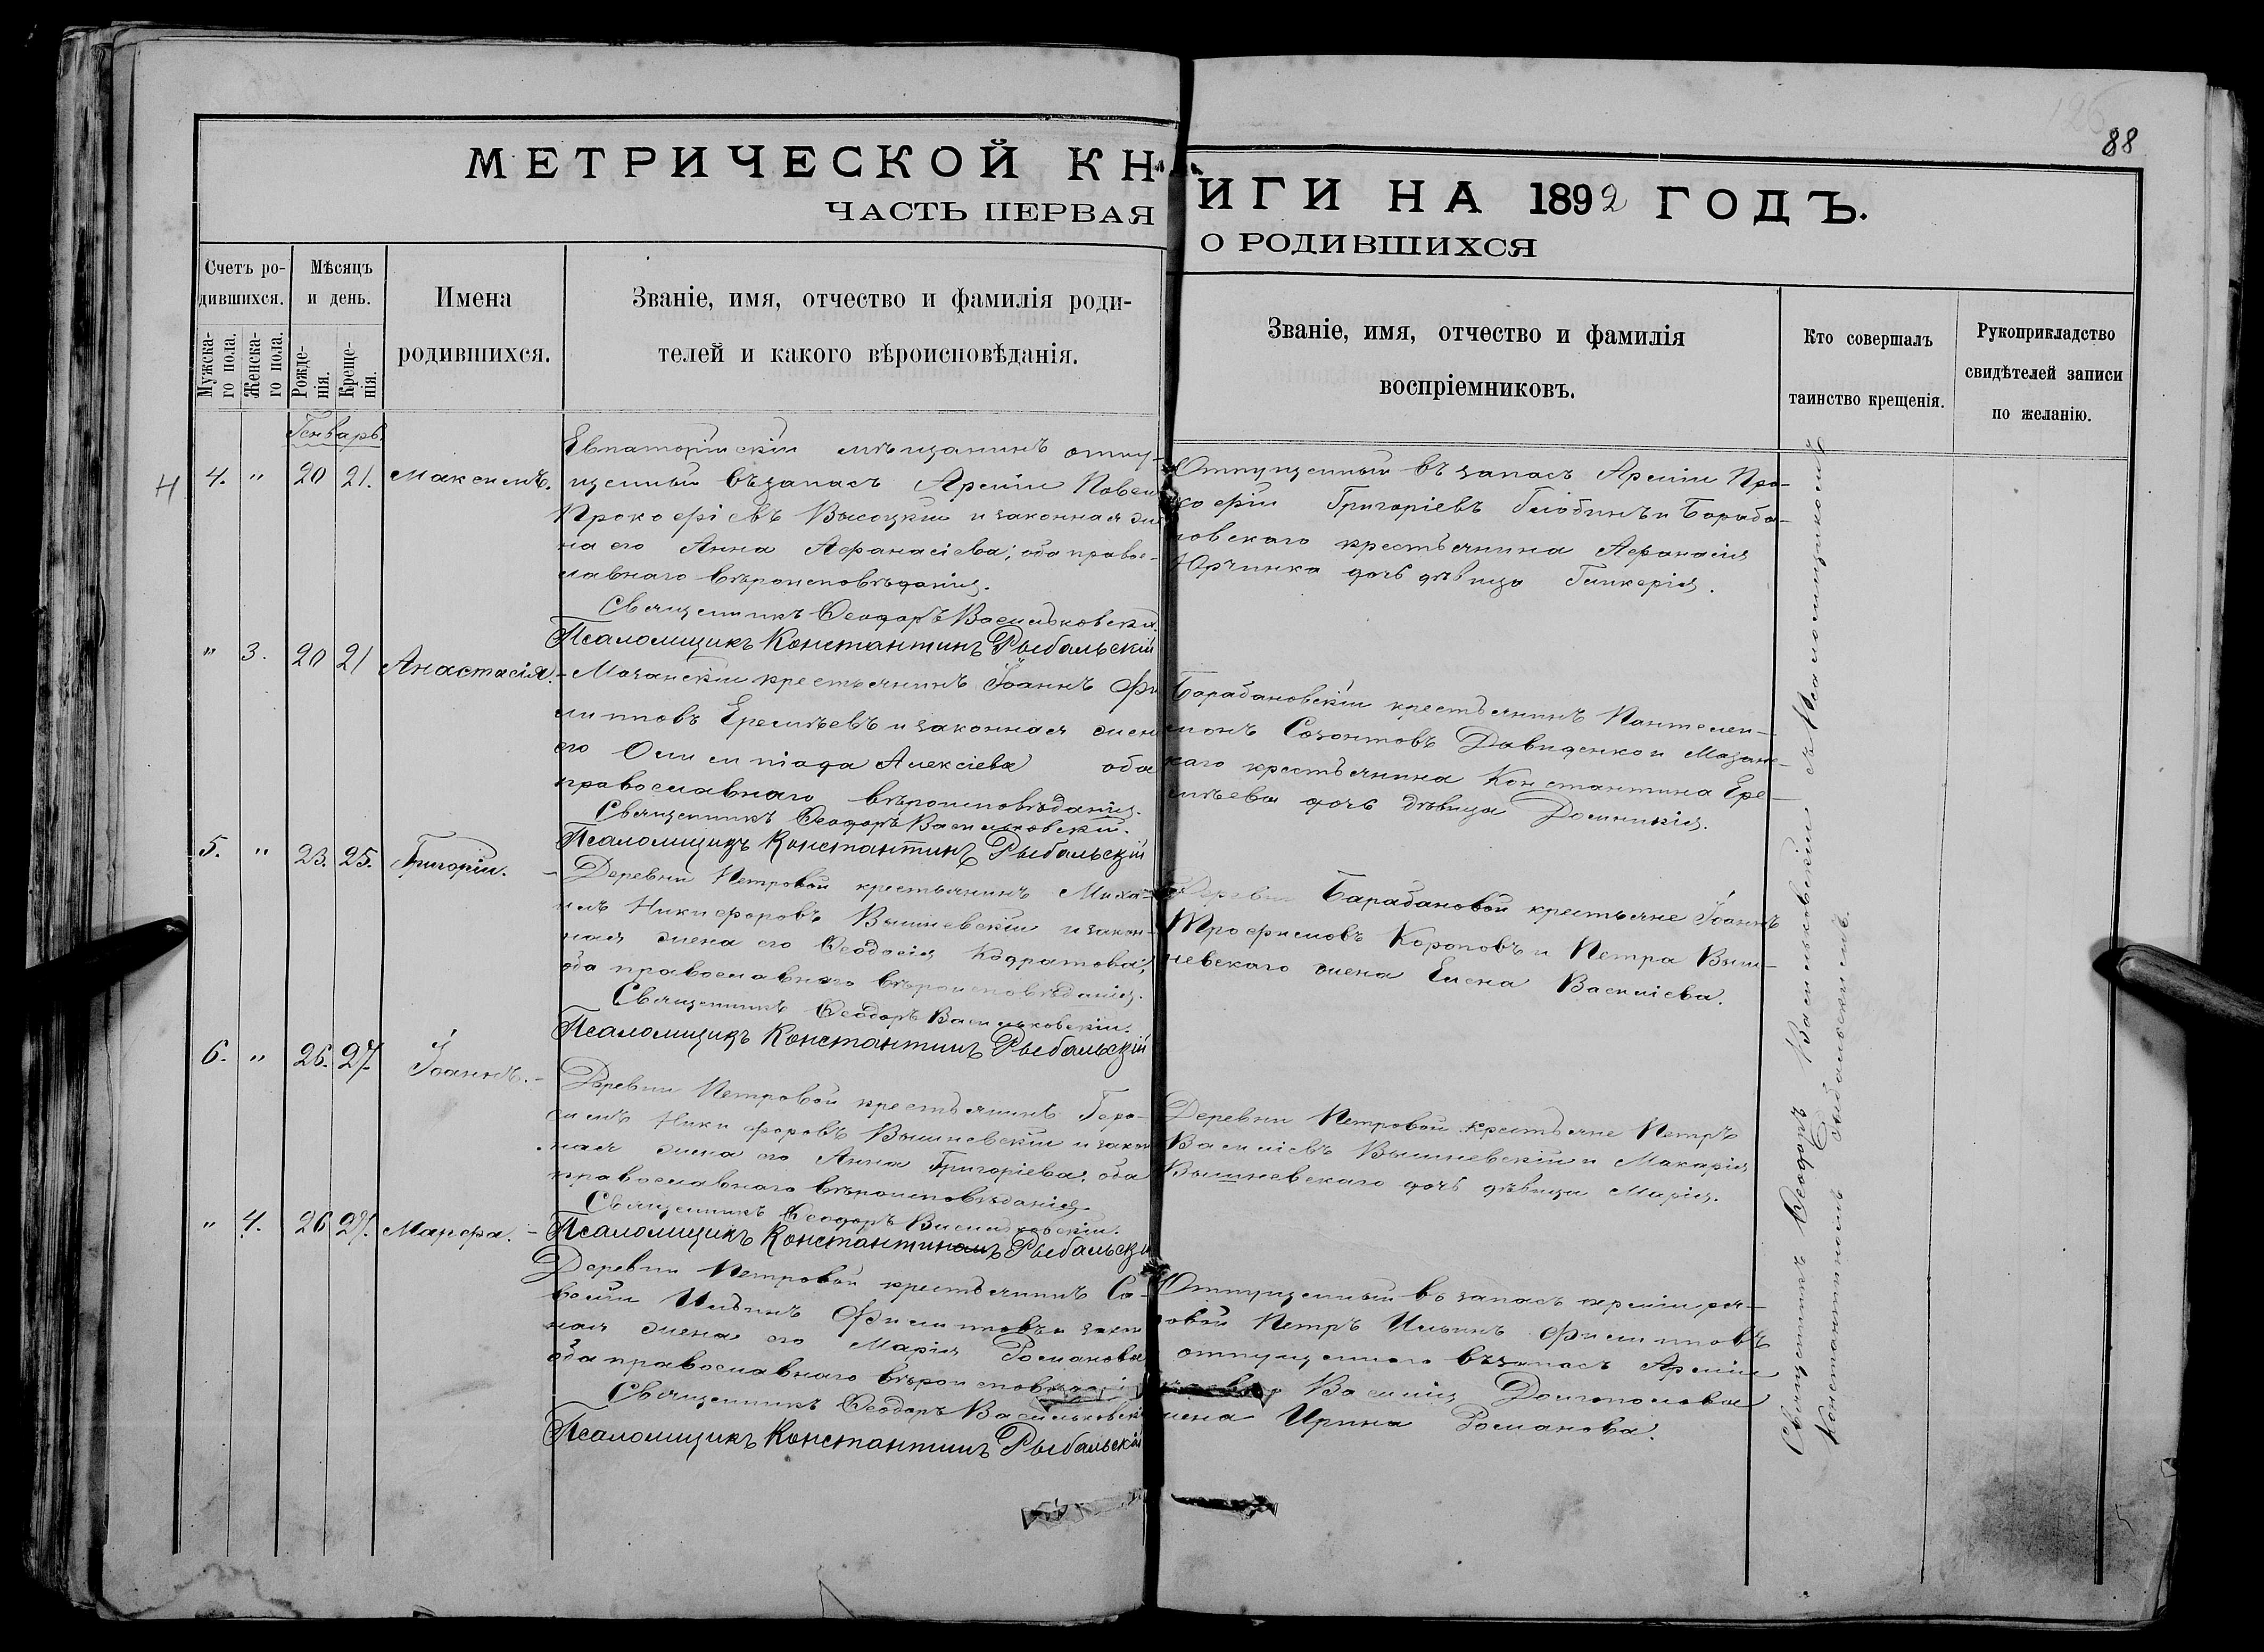 88
МЕТРИЧЕСКОЙ КНИГИ НА 1892 ГОДЪ.
ЧАСТЬ ПЕРВАЯ О РОДИВШИХСЯ
Счетъ ро-
дившихся.
Мужска-
го пола.
Женска-
го пола.
Мѣсяцъ
и день.
Рожде-
нія.
Креще-
нія.
Имена
родившихся.
Званіе, имя, отчество и фамилія роди-
телей и какого вѣроисповѣданія.
Званіе, имя, отчество и фамилія
воспріемниковъ.
Кто совершалъ
таинство крещенія.
Рукоприкладство
свидѣтелей записи
по желанію.
Генварь
Н 4. " 20 21. Максимъ.
Евпаторійскій мѣщанинъ отпу-
щенный въ запасъ Арміи Павелъ
Прокофіевъ Высоцкій и законная же
на его Анна Афанасіева; оба право-
славнаго вѣроисповѣданія.
Священникъ Ѳеодоръ Васильковскій.
Псаломщикъ Константинъ Рыбальскій
Отпущенный въ запасъ Арміи Про-
кофій Григоріевъ и Бараба-
новскаго крестьянина Афанасія
Юрчинка дочь дѣвица Гликерія.
" 3. 20 21 Анастасія.
Мазанскій крестьянинъ Іоаннъ Фи
липповъ Еремѣевъ и законная жена
его Олимпіада Алексіева оба
православнаго вѣроисповѣданія.
Священникъ Ѳеодоръ Васильковскій.
Псаломщикъ Константинъ Рыбальскій
Барабановскій крестьянинъ Пантелей-
монъ Созонтовъ Давиденко и Мазанс-
каго крестьянина Константина Ере-
мѣева дочь дѣвица Домникія.
5. " 23. 25. Григорій.
Деревни Петровой крестьянинъ Миха-
илъ Никифоровъ Вышневскій и закон-
ная жена его Ѳеодосія Кодратова;
оба православнаго вѣроисповѣданія.
Священникъ Ѳеодоръ Васильковскій.
Псаломщикъ Константинъ Рыбальскій
Деревни Барабановой крестьяне Іоаннъ
Трофимовъ Короповъ и Петра Выш-
невскаго жена Елена Василіева.
6. " 26. 27. Іоаннъ.
Деревни Петровой крестьянинъ Гера-
симъ Никифоровъ Вышневскій и закон
ная жена его Анна Григоріева; оба
православнаго вѣроисповѣданія.
Священникъ Ѳеодоръ Васильковскій.
Псаломщикъ Константинъ Рыбальскій
Деревни Петровой крестьяне Петръ
Василіевъ Вышневскій и Макарія
Вышневскаго дочь дѣвица Марія.
" 4. 26 27. Марфа.
Деревни Петровой крестьянинъ Са-
велій Ильинъ Филипповъ и закон
ная жена его Марія Романова
оба православнаго
Священникъ Ѳеодоръ Васильковскій
Псаломщикъ Константинъ Рыбальскій
Отпущенный въ запасъ арміи ря-
довой Петръ Ильинъ Филипповъ
и отпущеннаго въ запасъ Арміи
Василія Долгополова
жена Ирина Романова.
Священникъ Ѳеодоръ Васильковскій съ Псаломщикомъ
Константиномъ Рыбальскимъ.